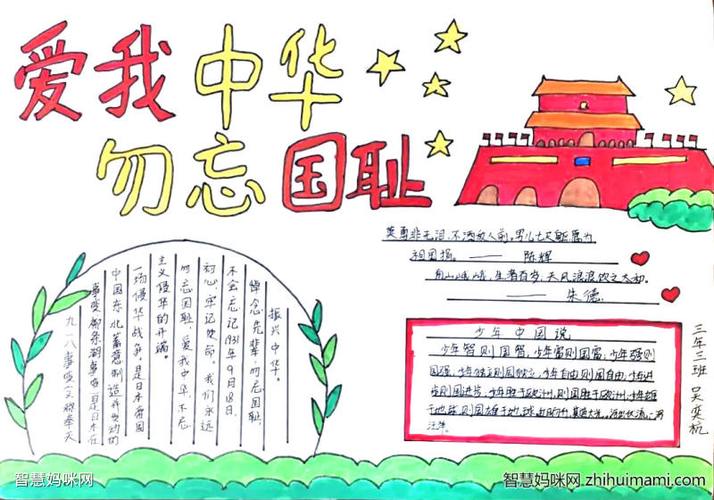 爱我中华
勿忘国耻
英勇非无泪,不洒敌人前,男儿七尺躯愿为
祖国捐。—— 陈辉
天风浪浪饮之太和.
—— 朱德.
九一八事变又称奉天
事变、柳条湖事变,是日本在
中国东北蓄意制造并发动的
一场侵华战争,是日本帝国
主义侵华的开端
勿忘国耻,爱我中华,不忘
初心,牢记使命。我们永远
不会忘记1931年9月18日。
悼念先辈,勿忘国耻,
振兴中华。
少年中国说
少年智则国智,少年富则国富,少年强则
国强,少年独立则国独立,少年自由则国自由,少年进
步则国进步,少年胜于欧洲,则国胜于欧洲,少年雄
于地球,则国雄于地球,红日初升,其道大光。河出伏流,一泻
汪洋。
三年三班 吴奕杭
智慧妈咪网
智慧妈咪网 zhihuimami.com